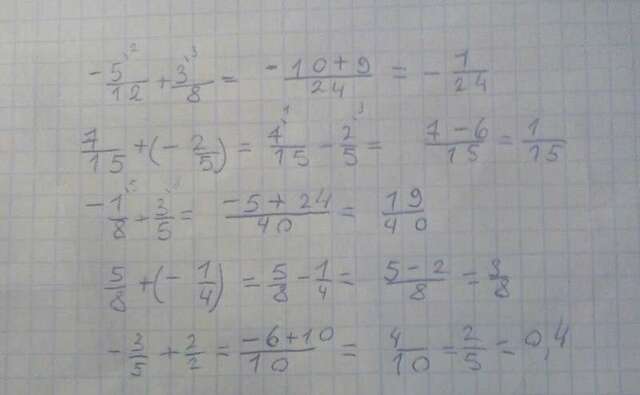 -5^2/12 + 3^3/8 = (-10+9)/24 = -1/24
7/15 + (-2/5) = 7^1/15 - 2^3/5 = (7-6)/15 = 1/15
-1^5/8 + 3/5 = (-5+24)/40 = 19/40
5/8 + (-1/4) = 5/8 - 1/4 = (5-2)/8 = 3/8
-3/5 + 2/2 = (-6+10)/10 = 4/10 = 2/5 = 0,4